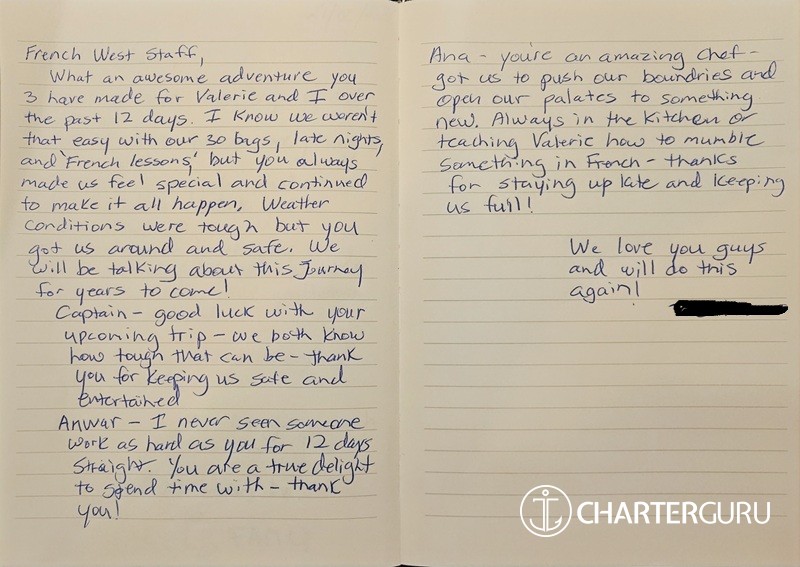 French West Staff,
What an awesome adventure you
3 have made for Valerie and I over
the past 12 days. I know we weren't
that easy with our 30 bags, late nights,
and 'French lessons,' but you always
made us feel special and continued
to make it all happen. Weather
conditions were tough but you
got us around and safe. We
will be talking about this Journey
for years to come!
Captain - good luck with your
upcoming trip - we both know
how tough that can be - thank
you for keeping us safe and
entertained
Anwar - I never seen someone
work as hard as you for 12 days
straight. You are a true delight
to spend time with - thank
you!
Ana - you're an amazing chef -
got us to push our boundries and
open our palates to something
new. Always in the kitchen or
teaching Valerie how to mumble
something in French - thanks
for staying up late and keeping
us full!
We love you guys
and will do this
again!
CHARTERGURU